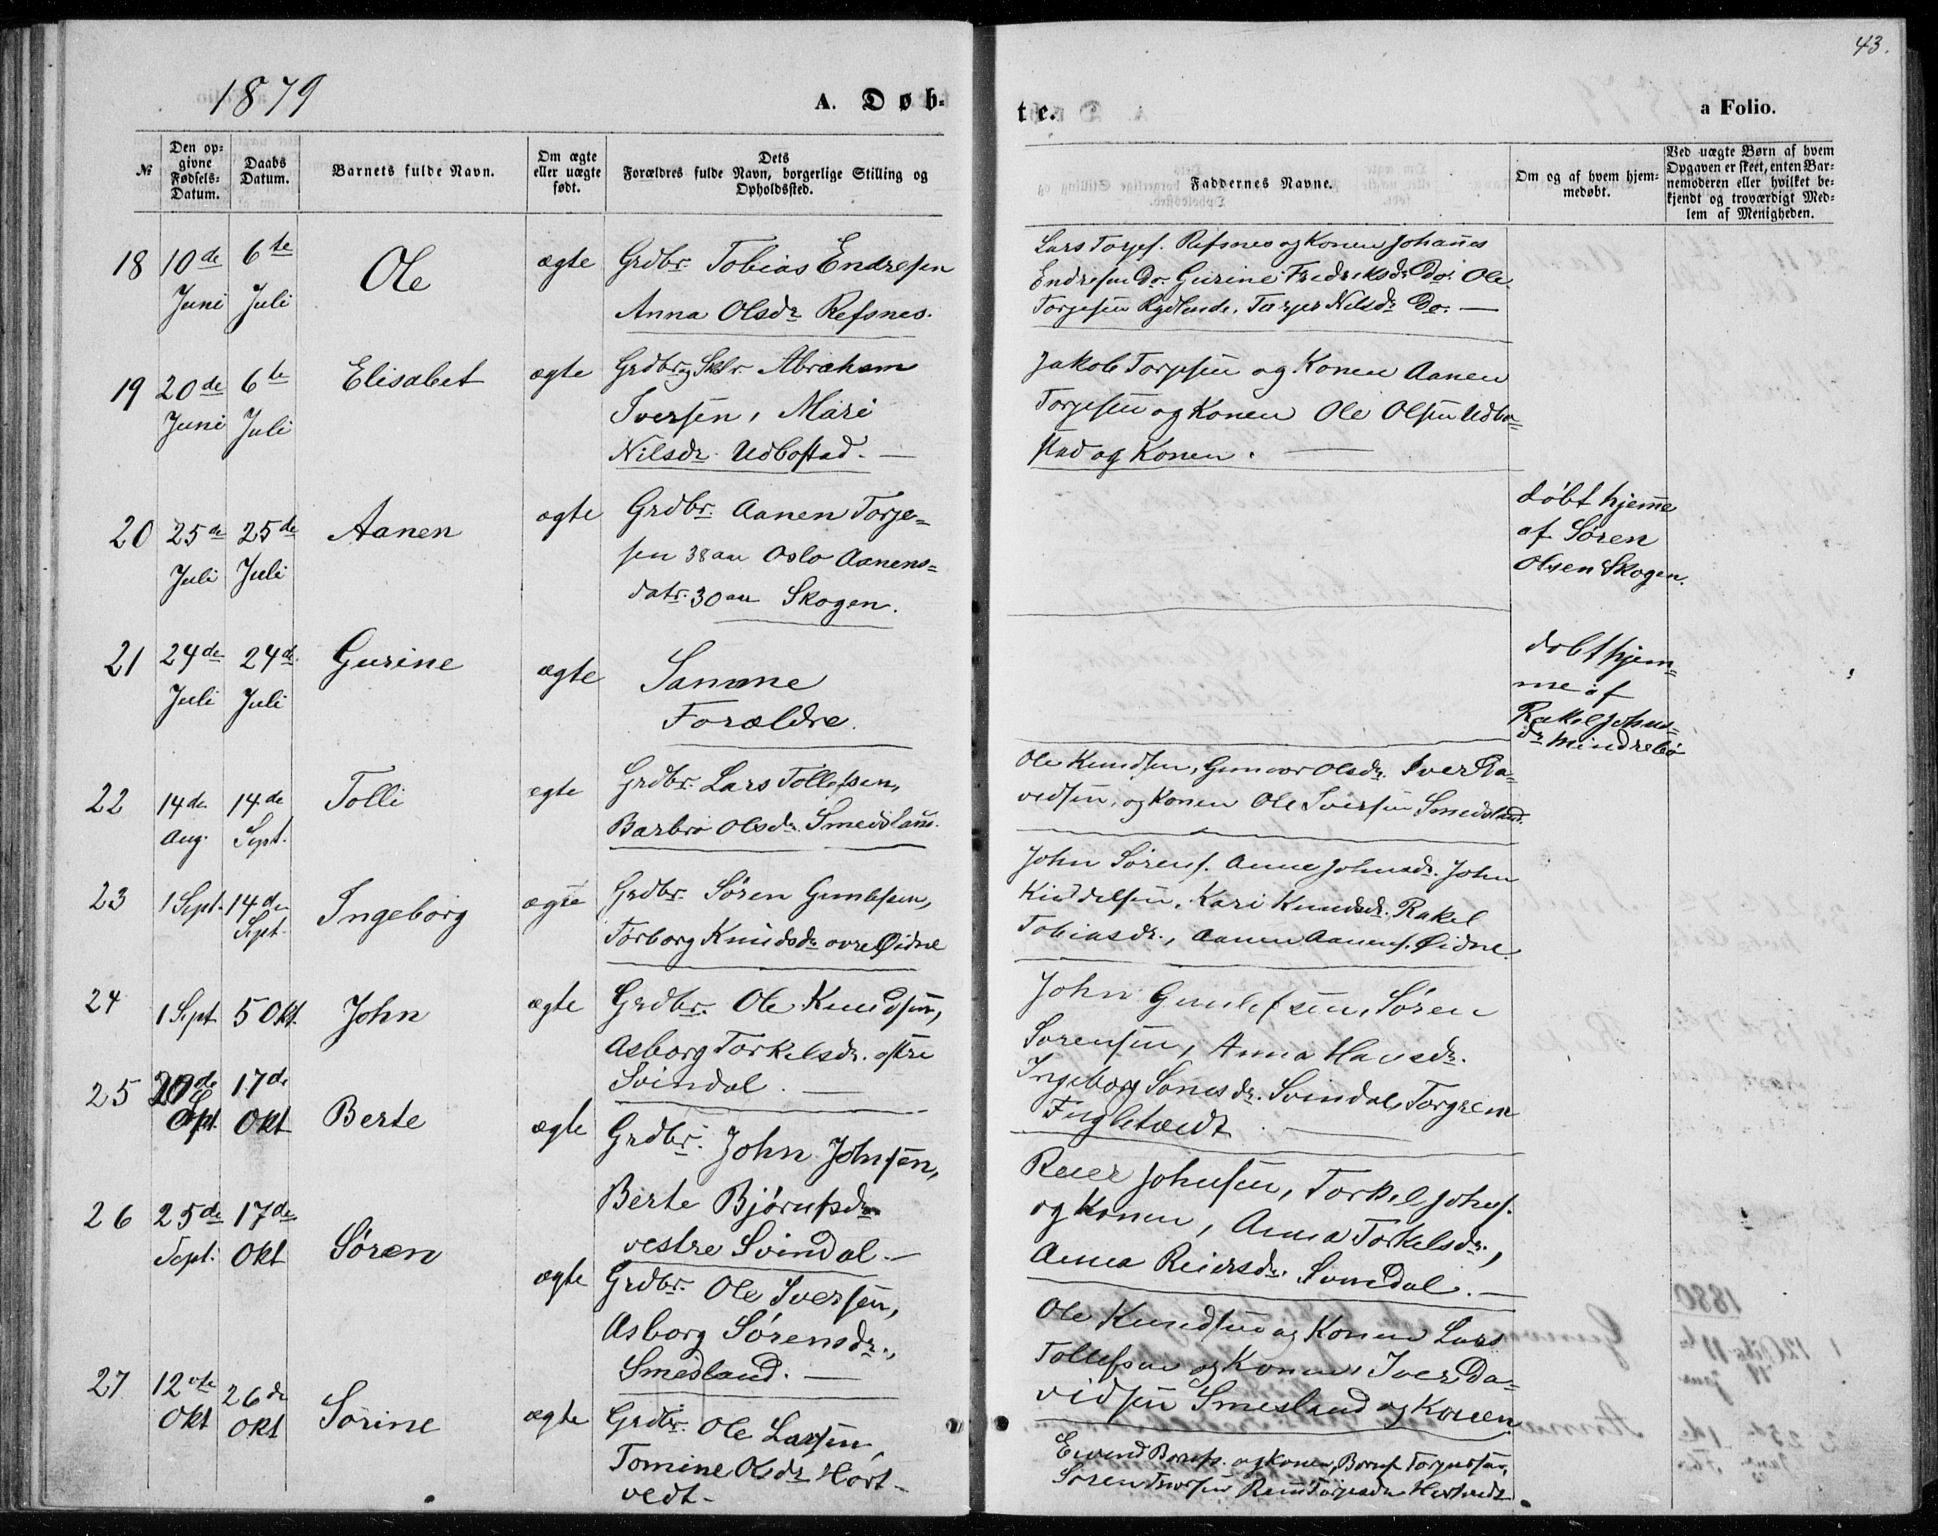 43.
1879
A. Døb-
te.
a Folio.
№
Den op-
givne
Fødsels-
Datum.
Daabs
Datum.
Barnets fulde Navn.
Om ægte
eller uægte
født.
Dets
Forældres fulde Navn, borgerlige Stilling og
Opholdssted.
Faddernes Navne.
Om og af hvem hjem-
medøbt.
Ved uægte Børn af hvem
Opgaven er skeet, enten Bar-
nemoderen eller hvilket be-
kjendt og troværdigt Med-
lem af Menigheden.
18 10de 6te Ole ægte Grdbr. Tobias Endresen
Juni Juli Anna Olsdr Refsnes.
Lars Torjes. Refsnes og Konen Johanes
Endresen Do. Gurine Fredriksdr Do. Ole
Torjesen Rydlende. Nilsdr Do. —
19 20de 6te Elisabet ægte Grdbr og Sklr Abraham
Juni Juli Iversen, Mari
Nilsdr. Udbostad. —
Jakob Torjesen og Konen Aanen
Torjesen og Konen Ole Olsen Udbo=
stad og Konen. —
20 25de 25de Aanen ægte Grdbr. Aanen Torje=
Juli Juli sen 38 aar Oslo Aanens=
datr. 30 aar Skogen.
døbt hjemme
af Søren
Olsen Skogen.
21 24de 24de Gurine ægte Samme
Juli Juli Forældre.
døbt hjem=
me af
Rakel Johns=
dr Mindrebø
22 14de 14de Tolli egte Grdbr. Lars Tollefsen,
Aug. Sept. Barbro Olsdr. Smedsland.
Ole Knudsen, Gunvor Olsdr. Iver Da=
vidsen, og Konen Ole Iversen Smedsland.
23 1 Sept. 14de Ingeborg ægte Grdbr. Søren Gunlefsen,
Sept. Torborg Knudsdr ovre Øidne
John Sørens. Anne Johnsdr. John
Kari Knudsdr. Rakel
Tobiasdr., Aanen Aanens. Øidne.
24 1 Sept 5 Okt. John ægte Grdbr. Ole Knudsen,
Asborg Torkelsdr. østre
Svindal. —
John Gunlefsen, Søren
Sørensen, Anna Hansdr.
Ingeborg Svindal, Torgrem
25 17de Berte ægte Grdbr. John Johnsen,
Spt. Okt Berte
vestre Svindal. —
Reier Johnsen, Torkel Johns.
og Konen, Anna Torkelsdr.,
Anna Reiersdr. Svindal. —
26 25de 17de Søren ægte Grdbr. Ole Iversen,
Sept. Okt Asborg Sørensdr.,
Smesland. —
Ole Knudsen og Konen Lars
Tollefsen og Konen, Iver Da=
vidsen Smesland og Konen
27 12te 26de Sørine ægte Grdbr. Ole Larsen,
Okt Okt Tomine Olsdr Hørt-
vedt-
Eivind og Konen,
Søren Hørtvedt